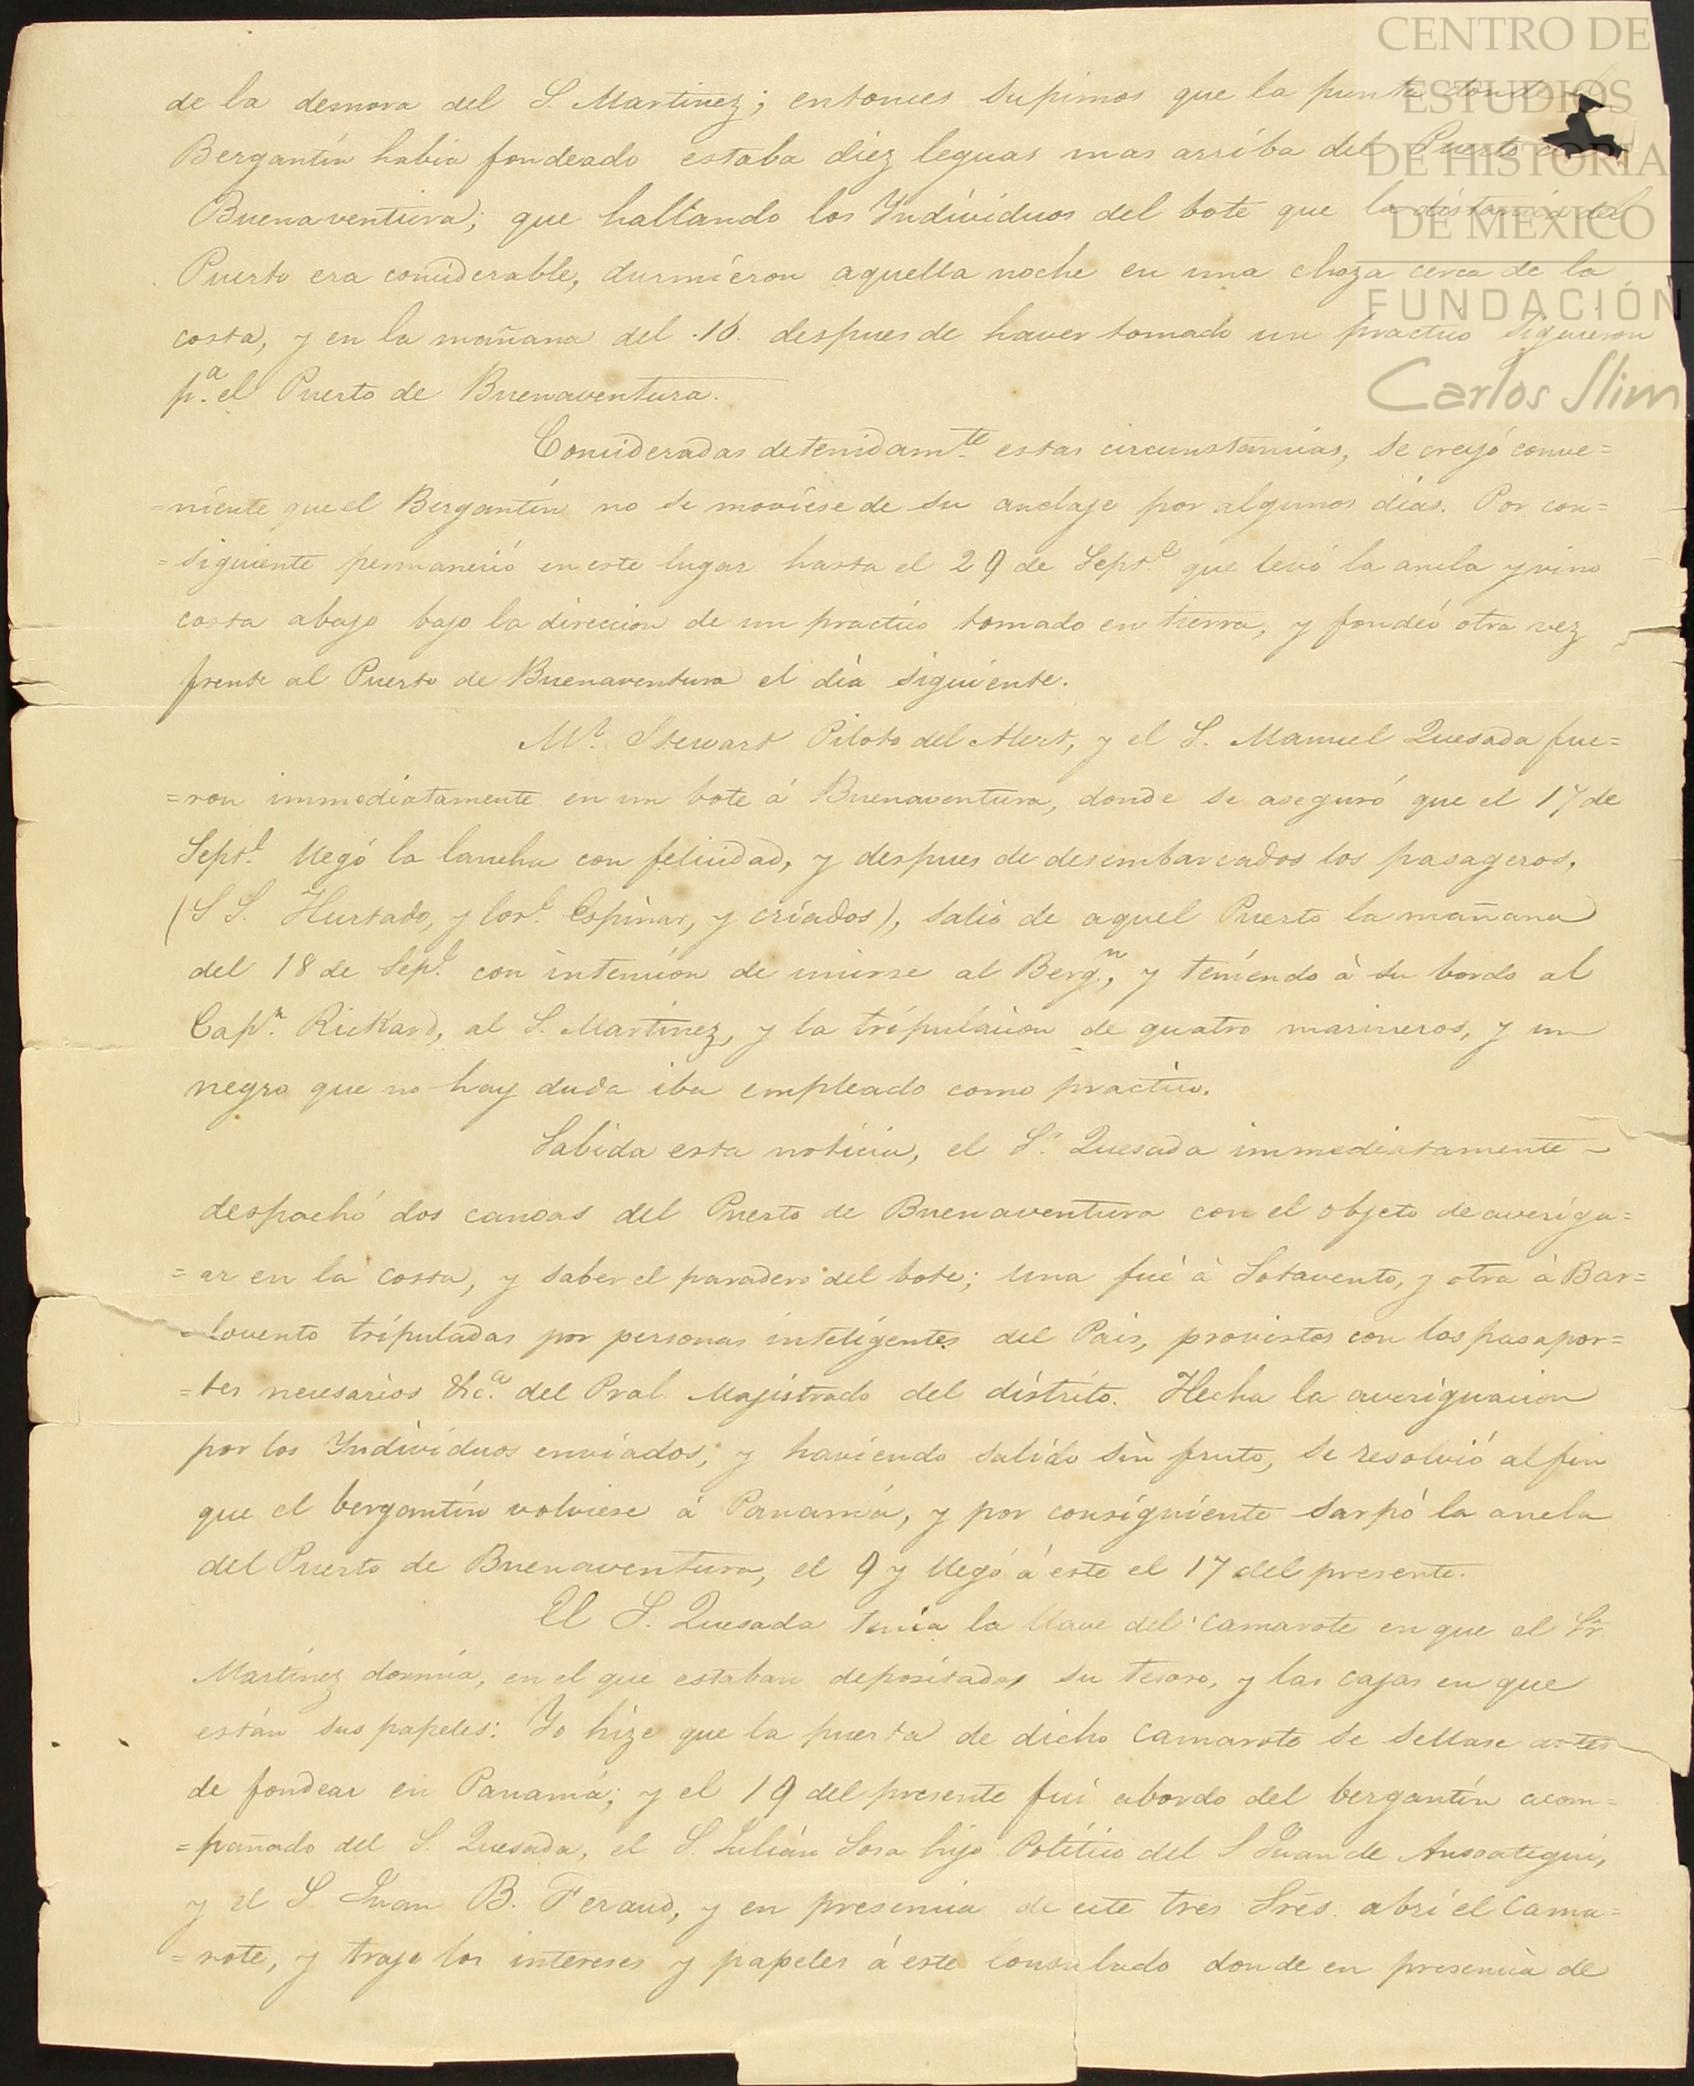 CENTRO DE
ESTUDIOS
DE HISTORIA
DE MÉXICO
FUNDACIÓN
Carlos Slim
de la demora del S. Martinez; entonces supimos que la punta donde
Bergantin habia fondeado estaba diez leguas mas arriba del Puerto
Buenaventura; que hallando los Yndividuos del bote que la distancia del
Puerto era considerable, durmieron aquella noche en una choza cerca de la
costa, y en la mañana del .16. despues de haver tomado un practico siguieron
p.ª el Puerto de Buenaventura.
Consideradas detenidam.te estas circunstancias, se creyó conve=
=niente que el Bergantin no se moviese de su anclaje por algunos dias. Por con=
=siguiente permaneció en este lugar hasta el 29 de Sept.e que levó la ancla y vino
costa abajo bajo la direccion de un practico tomado en tierra, y fondeó otra vez
frente al Puerto de Buenaventura el dia siguiente.
Mr. Stewart Piloto del Alert, y el S. Manuel Quesada fue=
=ron immediatamente en un bote á Buenaventura, donde se aseguró que el 17 de
Sept.e llegó la lancha con felicidad, y despues de desembarcados los pasageros,
(S S. Hurtado, y Cor.l Espinar, y criados), salió de aquel Puerto la mañana
del 18 de Sep.e con intencion de unirse al Berg.n, y teniendo à su bordo al
Cap.n Rickard, al S. Martinez, y la tripulacion de quatro marineros, y un
negro que no hay duda iba empleado como practico.
Sabida esta noticia, el S.r Quesada immediatamente
despachó dos canoas del Puerto de Buenaventura con el objeto de averigu=
=ar en la costa, y saber el paradero del bote; una fué à Sotavento, y otra á Bar=
=lovento tripuladas por personas inteligentes del Pais, provistos con los pasapor=
=tes necesarios &c.ª del Pral. Majistrado del distrito. Hecha la averiguacion
por los Yndividuos enviados, y haviendo salido sin fruto, se resolvió al fin
que el bergantin volviese á Panamá, y por consiguiente sarpó la ancla
del Puerto de Buenaventura, el 9 y llegó á este el 17 del presente.
El S. Quesada tenia la llave del camarote en que el Sr.
Martinez dormia, en el que estaban depositados su tesoro, y las cajas en que
están sus papeles: Yo hize que la puerta de dicho camarote se sellase antes
de fondear en Panamá; y el 19 del presente fui abordo del bergantin acom=
=pañado del S. Quesada, el S. Julián Sosa hijo Politico del S Juan de Ansoategui,
y el S. Juan B. Feraud, y en presencia de este tres Srẽs. abri el cama=
=rote, y traje los intereses y papeles á este consulado donde en presencia de